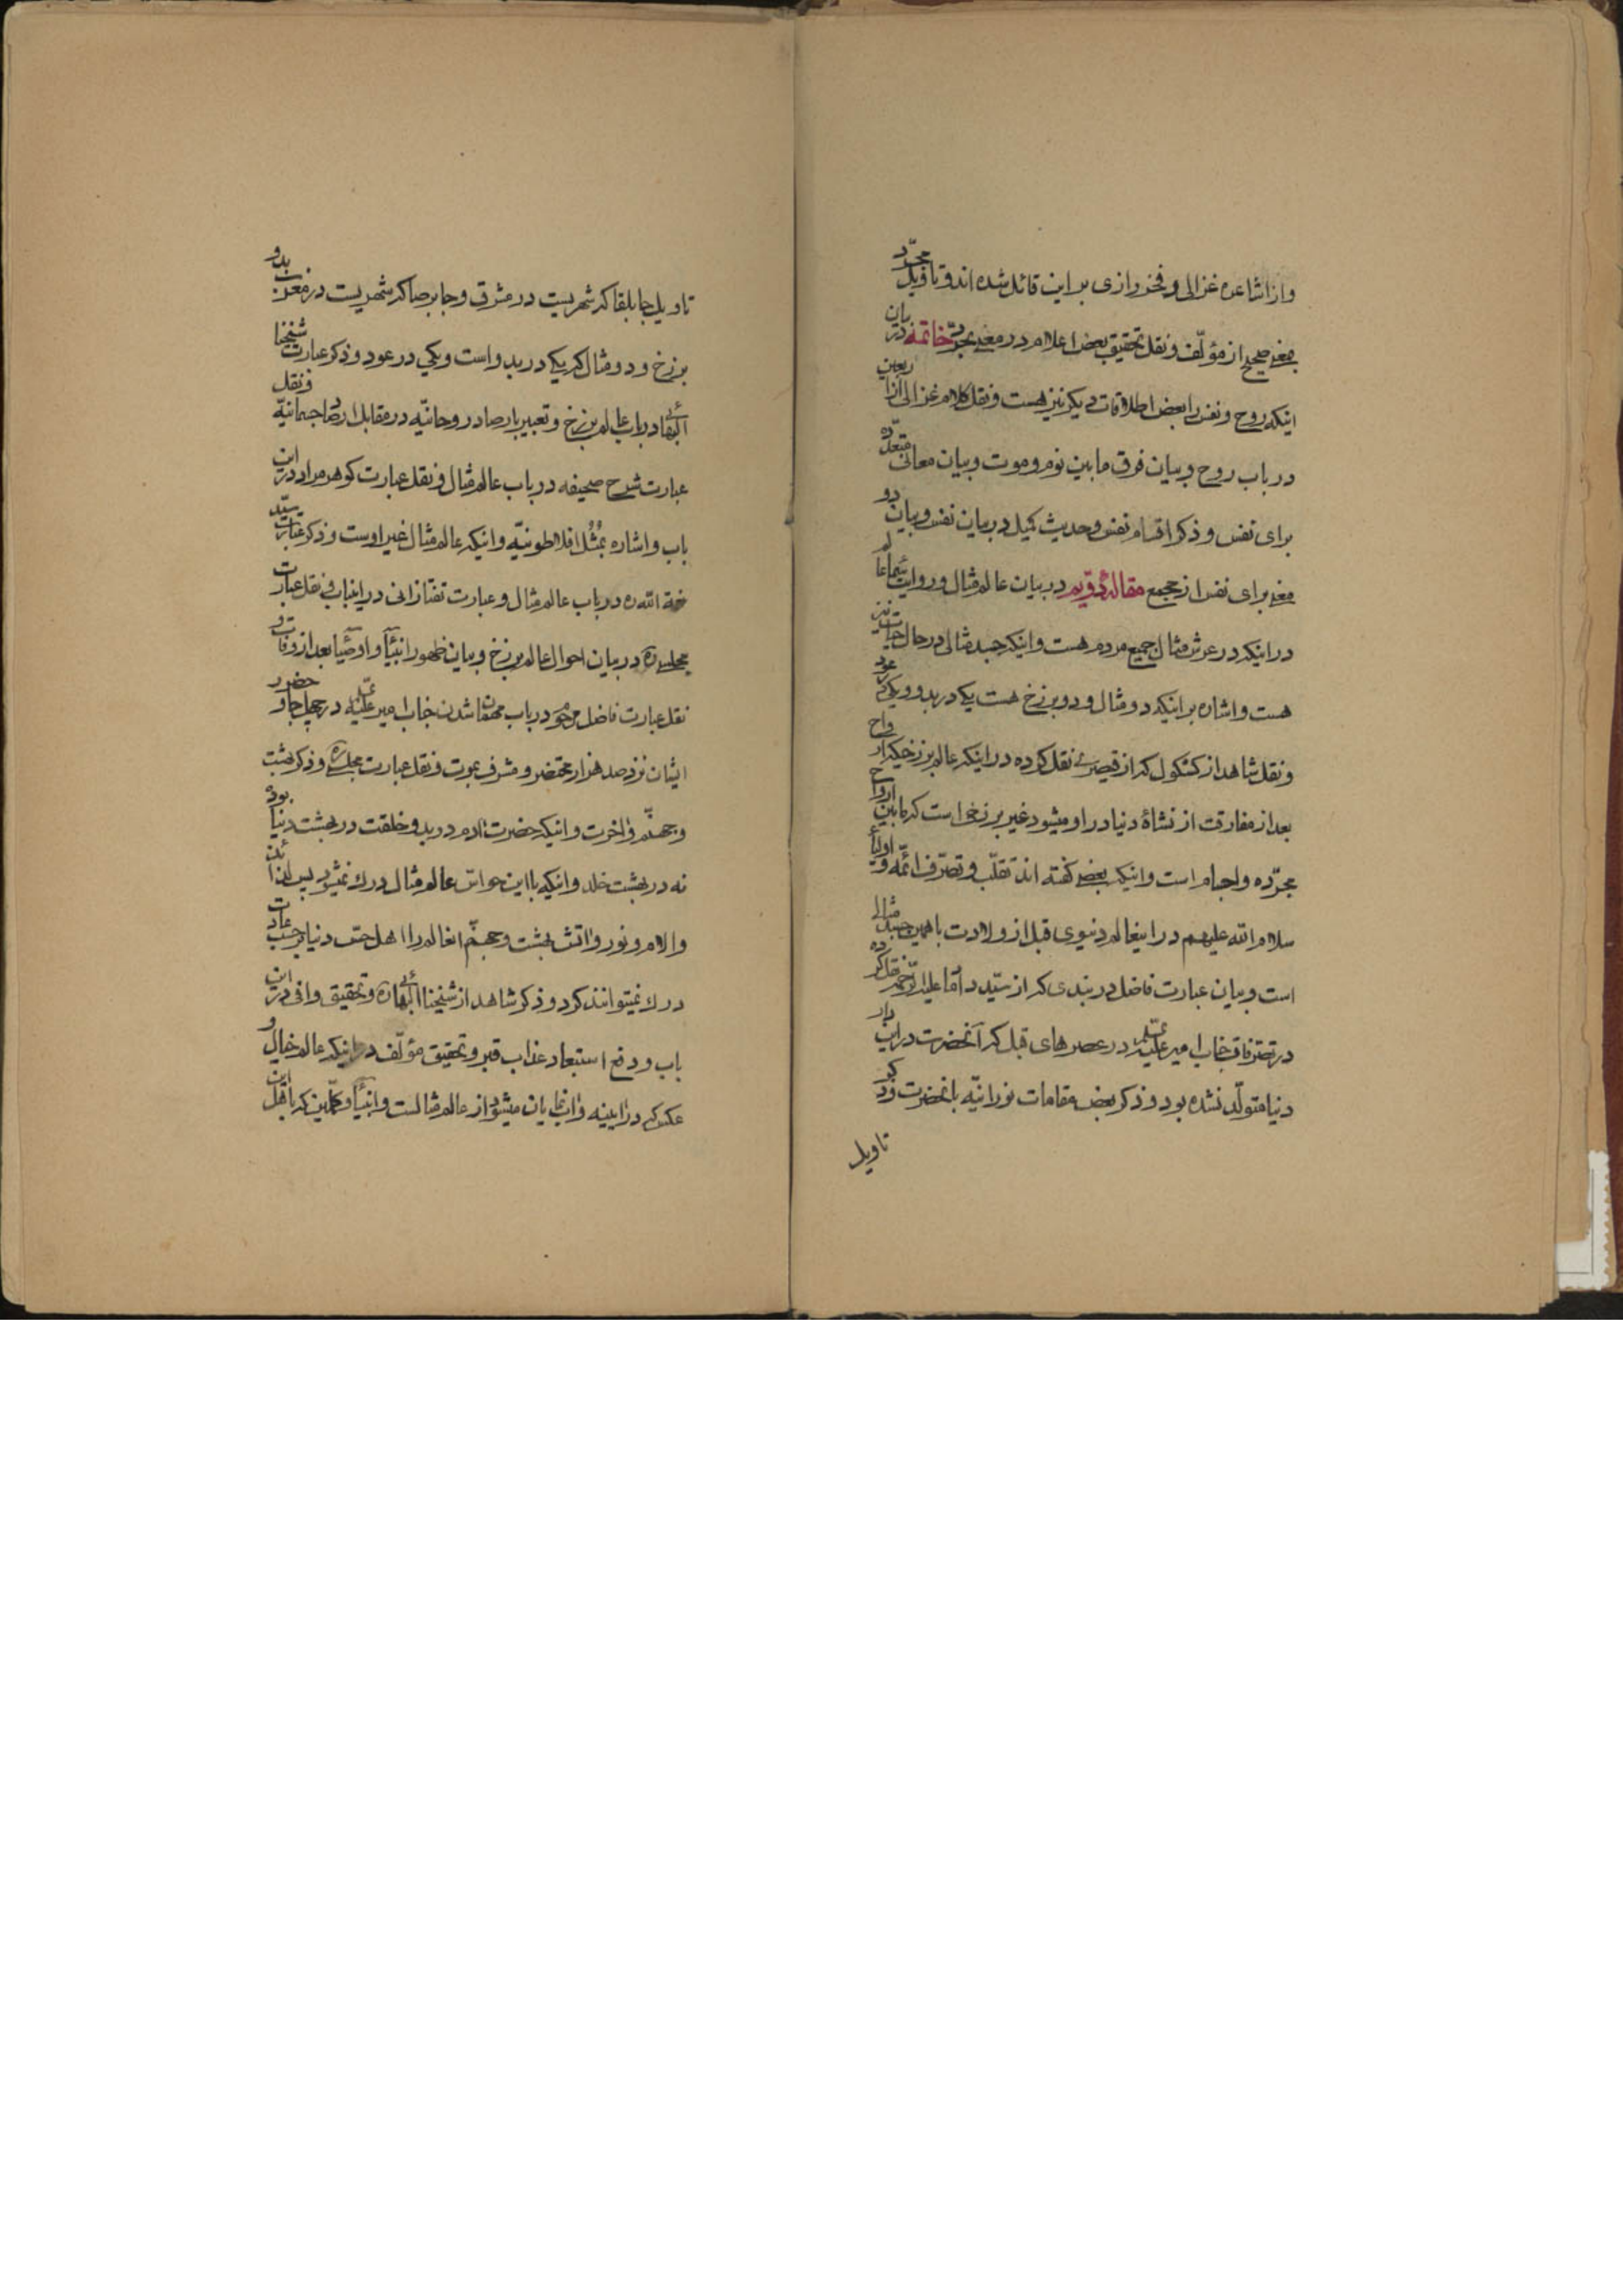 واز اشاعره غزالی و فخر رازی بر این قائل شده اند و تاویل مجرّد
بمعنی صحیح از مؤلّف و نقل تحقیق بعض اعلام در معنی تجرّد خاتمه در بیان
اینکه روح و نفس را بعض اطلاقات دیگر نیز هست و نقل کلام غزالی از اربعین
در باب روح و بیان فرق ما بین نوم و موت و بیان معانی متعدّده
برای نفس و ذکر اقسام نفس و حدیث کمیل در بیان نفس و بیان دو
معنی برای نفس از مجمع مقالهٔ دوّیم در بیان عالم مثال و روایت شیخ ما
در اینکه در عرش مثال جمیع مردم هست و اینکه جسد مثالی در حال حیات نیز
هست و اشاره بر اینکه دو مثال و دو برزخ هست یکی در بدو و یکی در عود
و نقل شاهد از کشکول که از قیصری نقل کرده در اینکه عالم برزخیکه ارواح
بعد از مفارقت از نشأهٔ دنیا در او میشود غیر برزخی است که ما بین ارواح
مجرّده و اجسام است و اینکه بعضی گفته اند تقلّب و تصرّف ائمّه و اولیاء
سلام الله علیهم در اینعالم دنیوی قبل از ولادت با همین جسد مثالی
است و بیان عبارت فاضل دربندی که از سیّد داماد علیه الرّحمه نقل کرده
در تصرّفات جناب امیر علیه در عصرهای قبل که آنحضرت در این دار
دنیا متولّد نشده بود و ذکر بعض مقامات نورانیّه بانحضرت
تاویل
تاویل جابلقا که شهریست در مشرق و جابرصا که شهریست در مغرب بدو
برزخ و دو مثال که یکی در بدو است و یکی در عود و ذکر عبارت شیخنا
البهائی در باب عالم برزخ و تعبیر بارصاد روحانیّه در مقابل ارصاد جسمانیّه و نقل
عبارت شرح صحیفه در باب عالم مثال و نقل عبارت گوهر مراد در این
باب و اشاره بمُثُل افلاطونیّه و اینکه عالم مثال غیر اوست و ذکر عبارت سیّد
نعمة الله ره در باب عالم مثال و عبارت تفتازانی در اینباب و نقل عبارت
مجلسی ره در بیان احوال عالم برزخ و بیان ظهور انبیآء و اوصیآء بعد از وفات و
نقل عبارت فاضل در باب مهمان شدن جناب امیر علیه در چهل جا و حضور
ایشان نزد صد هزار محتضر و مشرف بموت و نقل عبارت مجلسی ره و ذکر بهشت
و جهنّم و اخرت و اینکه حضرت ادم در بدو خلقت در بهشت دنیا بوده
نه در بهشت خلد و اینکه با این حواسّ عالم مثال درک نمیشود پس لذائذ
و الام و نور و اتش بهشت و جهنّم انعالم را اهل حس دنیا بر حسب عادت
درک نمیتوانند کرد و ذکر شاهد از شیخنا البهائی ره و تحقیق وافی در این
باب و دفع استبعاد عذاب قبر و تحقیق مؤلّف در اینکه عالم خیال و
عکس که در ایینه و اب نمایان میشود از عالم مثالست و انبیآء و کمّلین که با این